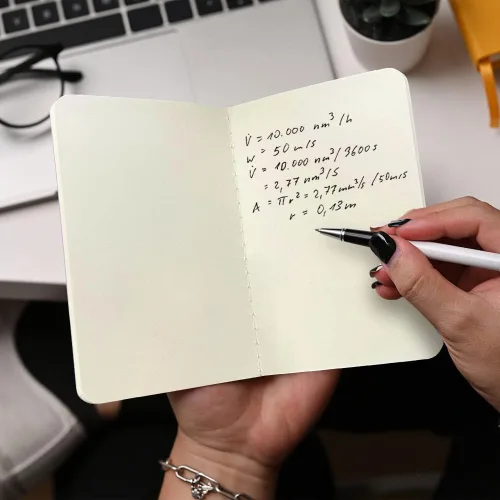 V̇ = 10.000 nm³/h
w = 50 m/s
V̇ = 10.000 nm³/3600s
= 2,77 nm³/s
A = πr² = 2,77nm³/s /50m/s
r = 0,13m